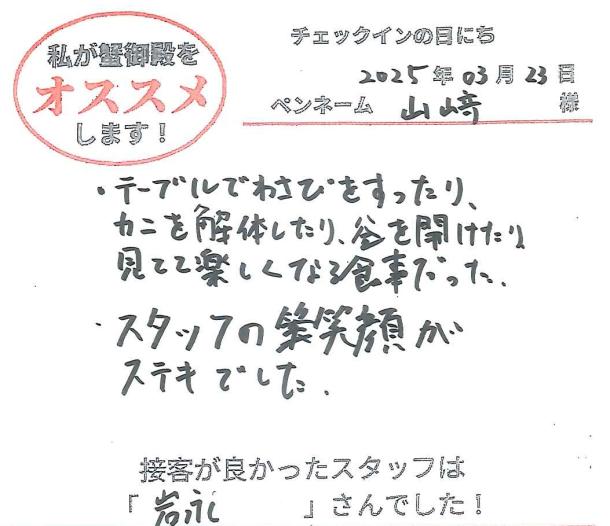 私が蟹御殿を
オススメ
します！
チェックインの日にち
2025年03月23日
ペンネーム 山﨑 様
・テーブルでわさびをすったり、
カニを解体したり、釜を開けたり
見てて楽しくなる食事だった.
・スタッフの笑顔が
ステキでした.
接客が良かったスタッフは
「岩永」さんでした！